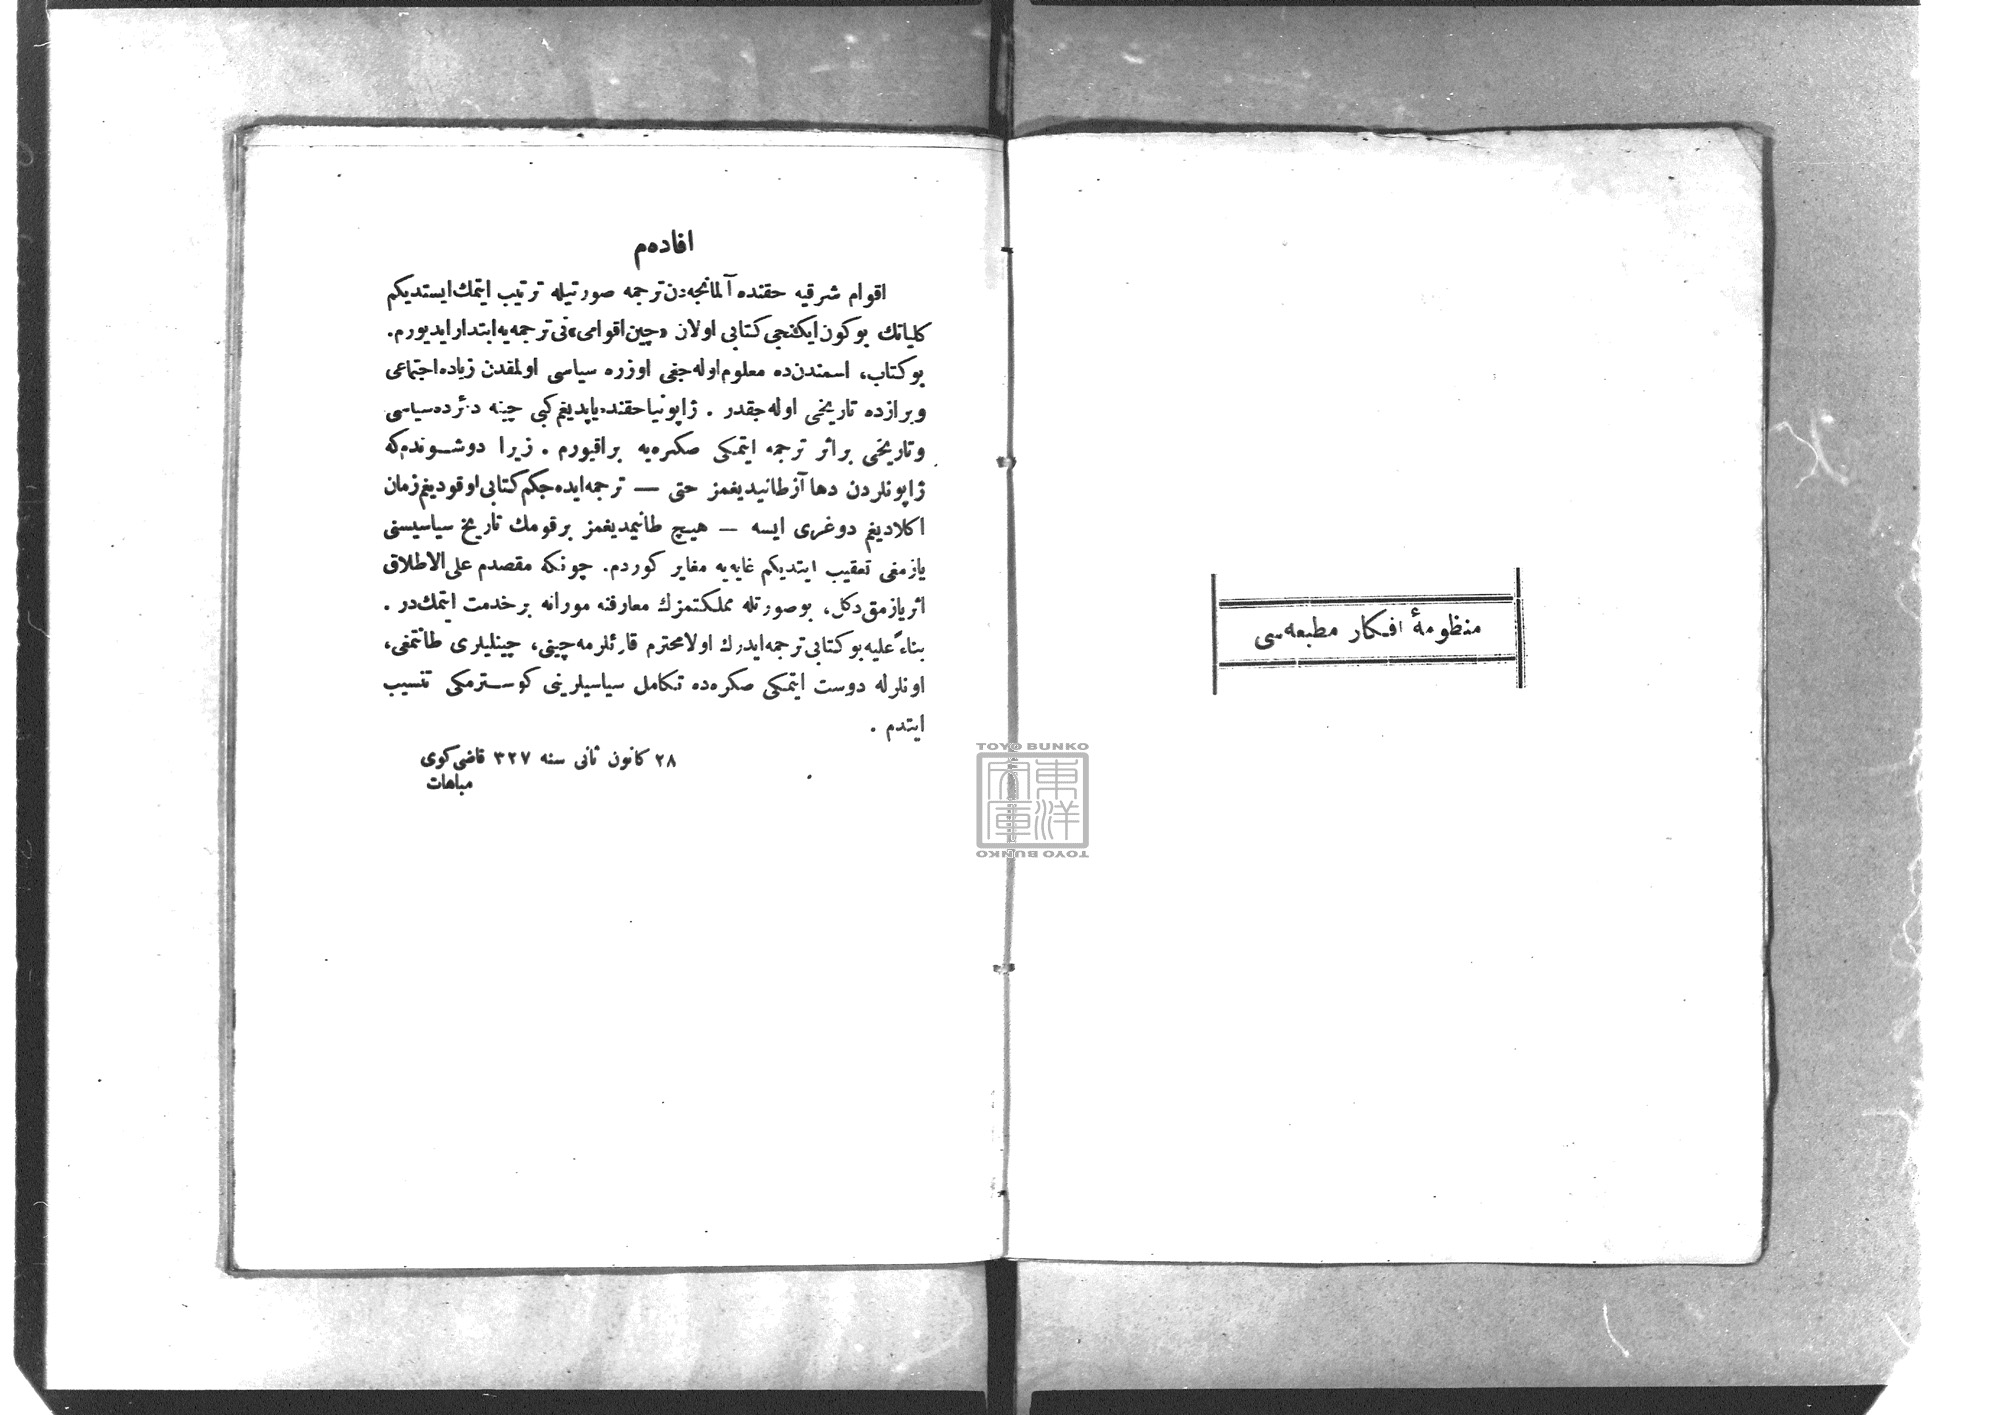 منظومهٔ افكار مطبعه‌سی
افاده‌م
اقوام شرقیه حقنده آلمانجه‌دن ترجمه صورتیله ترتیب ایتمك ایستدیكم
كلیاتك بوكون ایكنجی كتابی اولان «چین اقوامی»نی ترجمه‌یه ابتدار ایدیورم.
بو كتاب، اسمندن‌ده معلوم اوله‌جغی اوزره سیاسی اولمقدن زیاده اجتماعی
وبرازده تاریخی اوله‌جقدر. ژاپونیا حقنده یاپدیغم كبی چینه دائرده سیاسی
وتاریخی براثر ترجمه ایتمكی صكره‌یه براقیورم. زیرا دوشوندم‌كه
ژاپونلردن دها آز طانیدیغمز حتی — ترجمه ایده‌جكم كتابی اوقودیغم زمان
اكلادیغم دوغری ایسه — هیچ طانیمدیغمز برقومك تاریخ سیاسیسنی
یازمغی تعقیب ایتدیكم غایه‌یه مغایر كوردم. چونكه مقصدم علی‌الاطلاق
اثر یازمق دكل، بوصورتله مملكتمزك معارفنه مورانه برخدمت ایتمك‌در.
بناءً علیه بوكتابی ترجمه ایدرك اولا محترم قارئلرمه چینی، چینلیلری طانتمغی،
اونلرله دوست ایتمكی صكره‌ده تكامل سیاسیلرینی كوسترمكی تنسیب
ایتدم.
٢٨ كانون ثانی سنه ٣٢٧ قاضی‌كوی
مباهات
TOYO BUNKO
東洋文庫
TOYO BUNKO